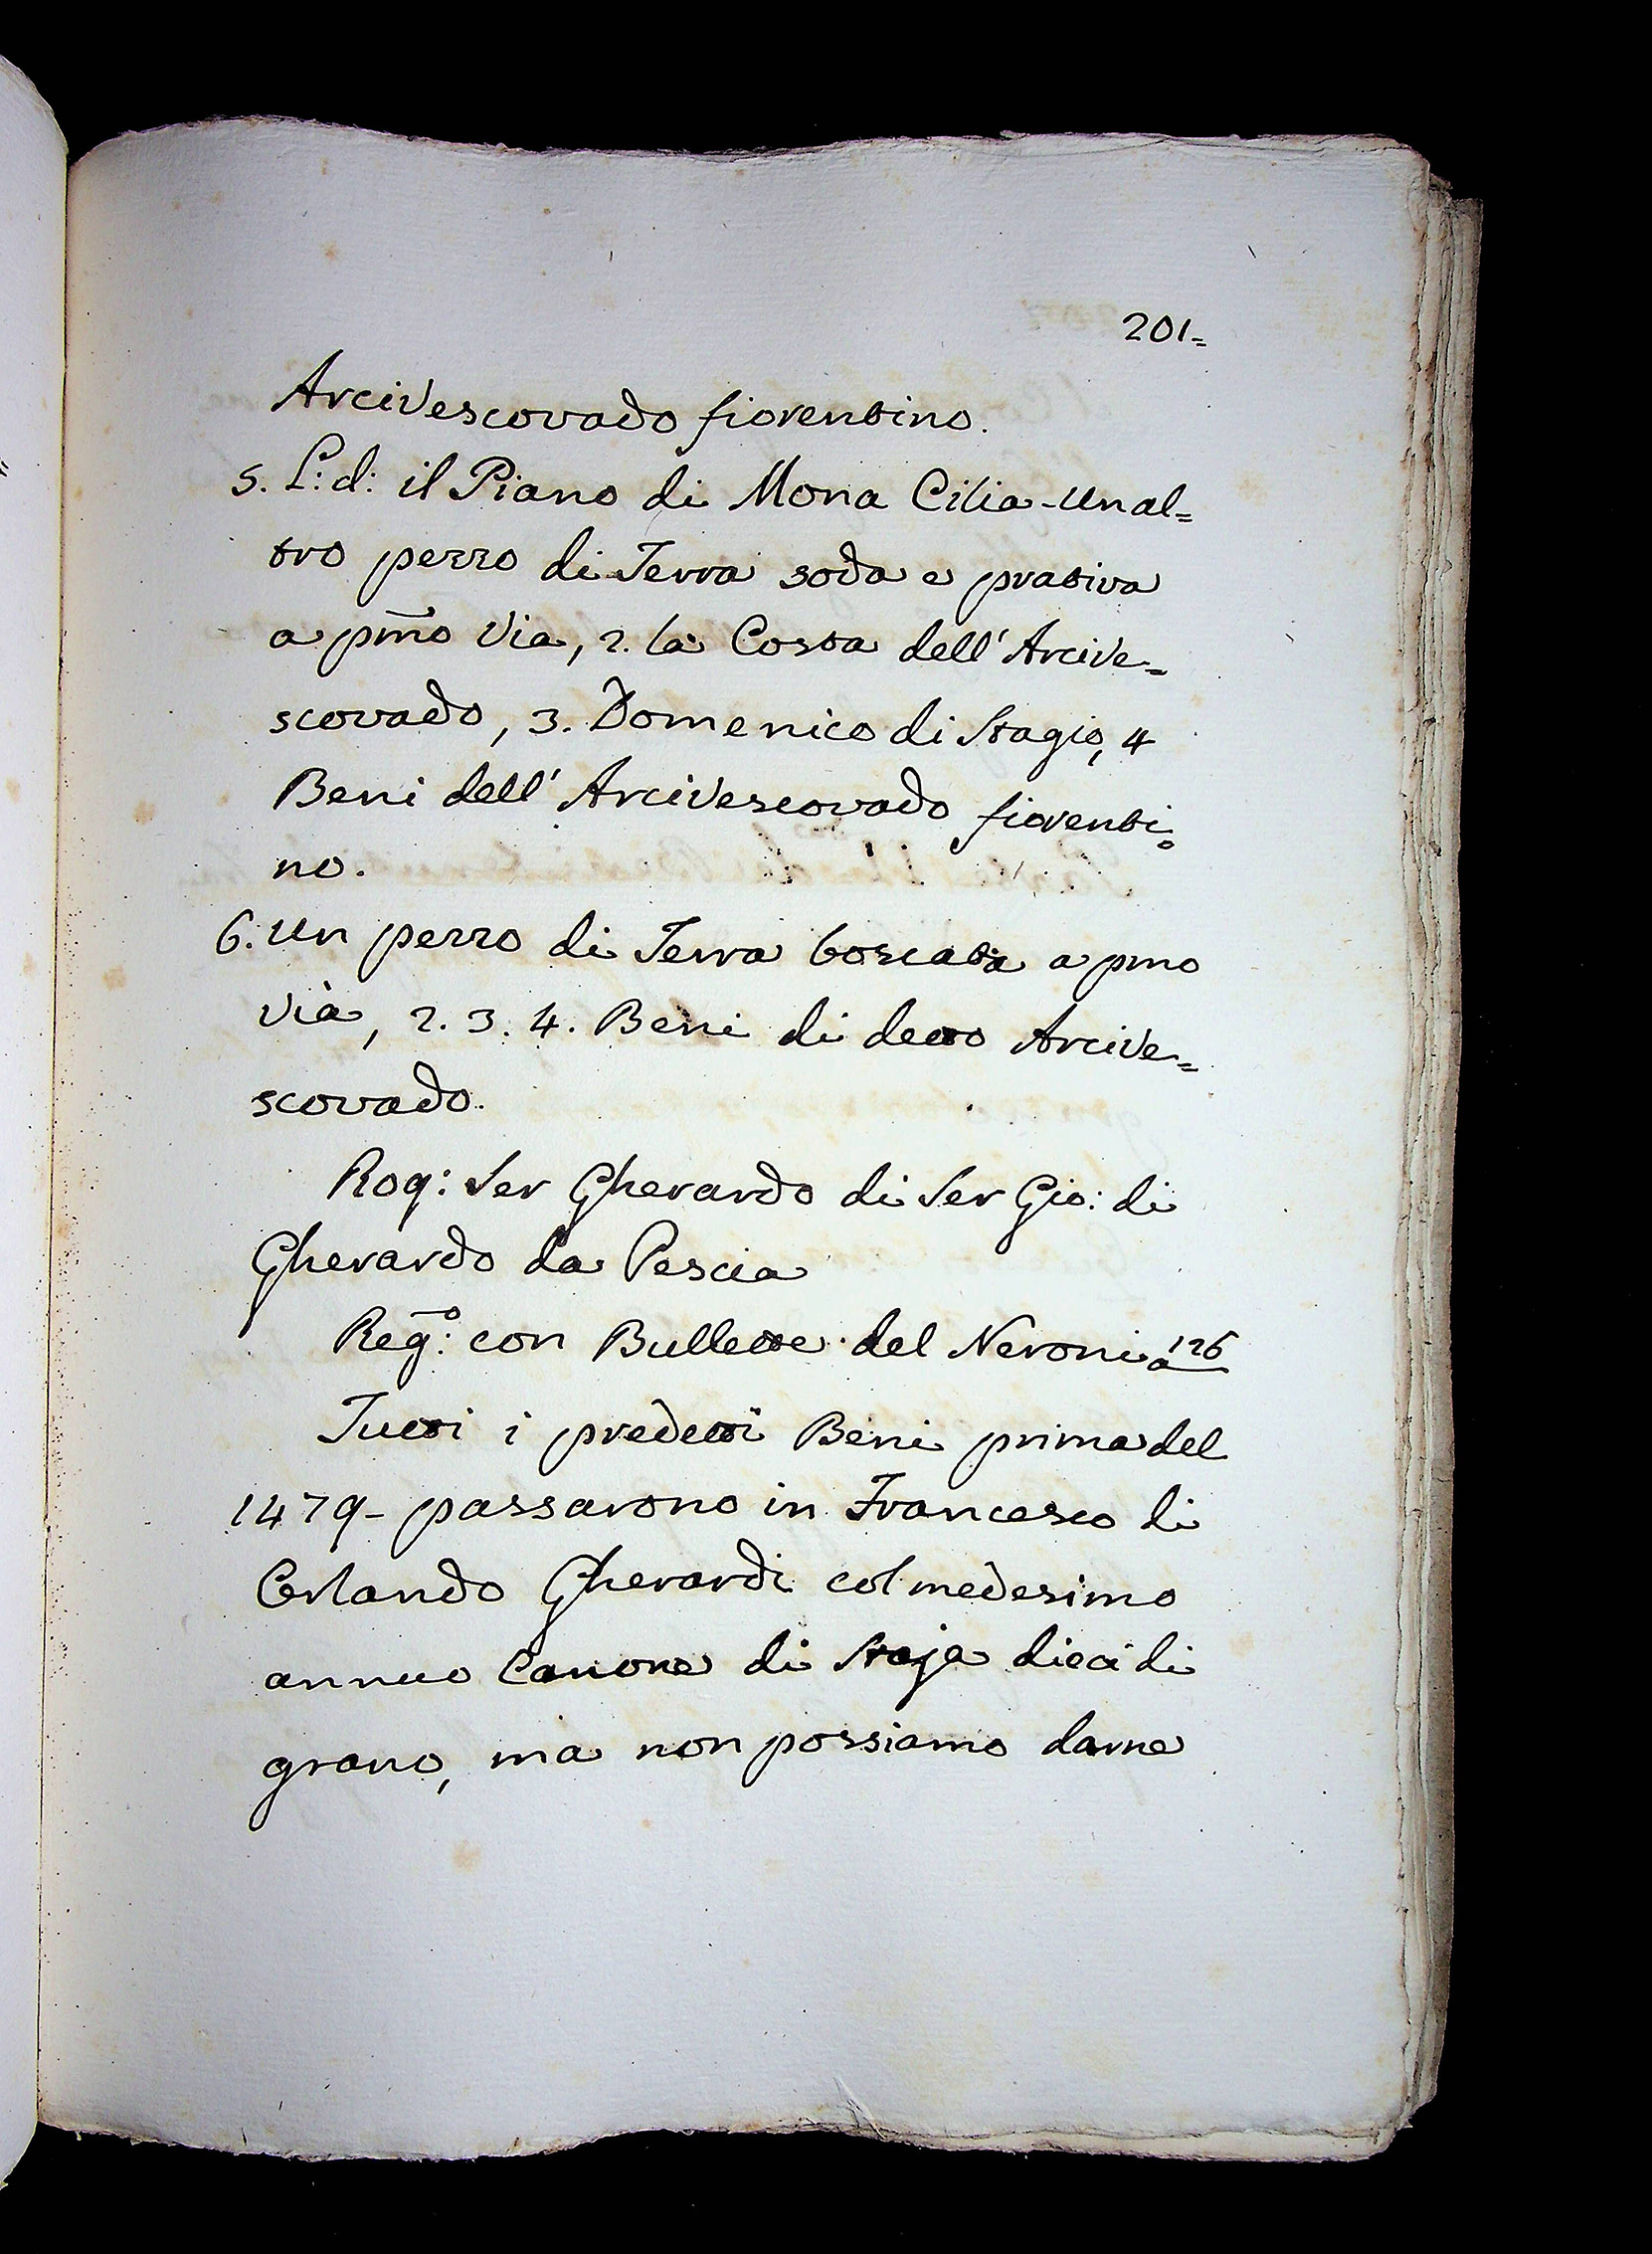 201=
Arcivescovado fiorentino.
5. L: d: il Piano di Mona Cilia - Unal=
tro pezzo di Terra soda e prativa
a pm̃o Via, 2. la Costa dell' Arcive=
scovado, 3. Domenico di Stagio, 4
Beni dell' Arcivescovado fiorenti=
no.
6. Un pezzo di Terra boscata a pmo
via, 2. 3. 4. Beni di detto Arcive=
scovado.
Rog: Ser Gherardo di Ser Gio: di
Gherardo da Pescia
Reg:º con Bullette del Neroni a 126
Tutti i predetti Beni prima del
1479 - passarono in Francesco di
Orlando Gherardi col medesimo
annuo Canone di Staja dieci di
grano, ma non possiamo darne